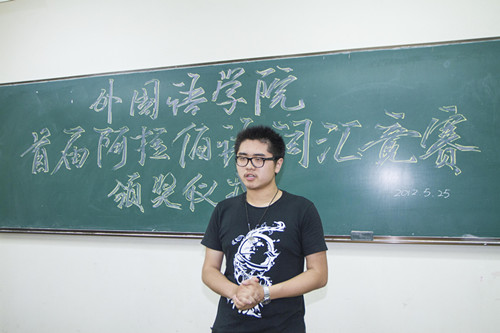 外国语学院
首届阿拉伯语词汇竞赛
颁奖仪式
2012.5.25